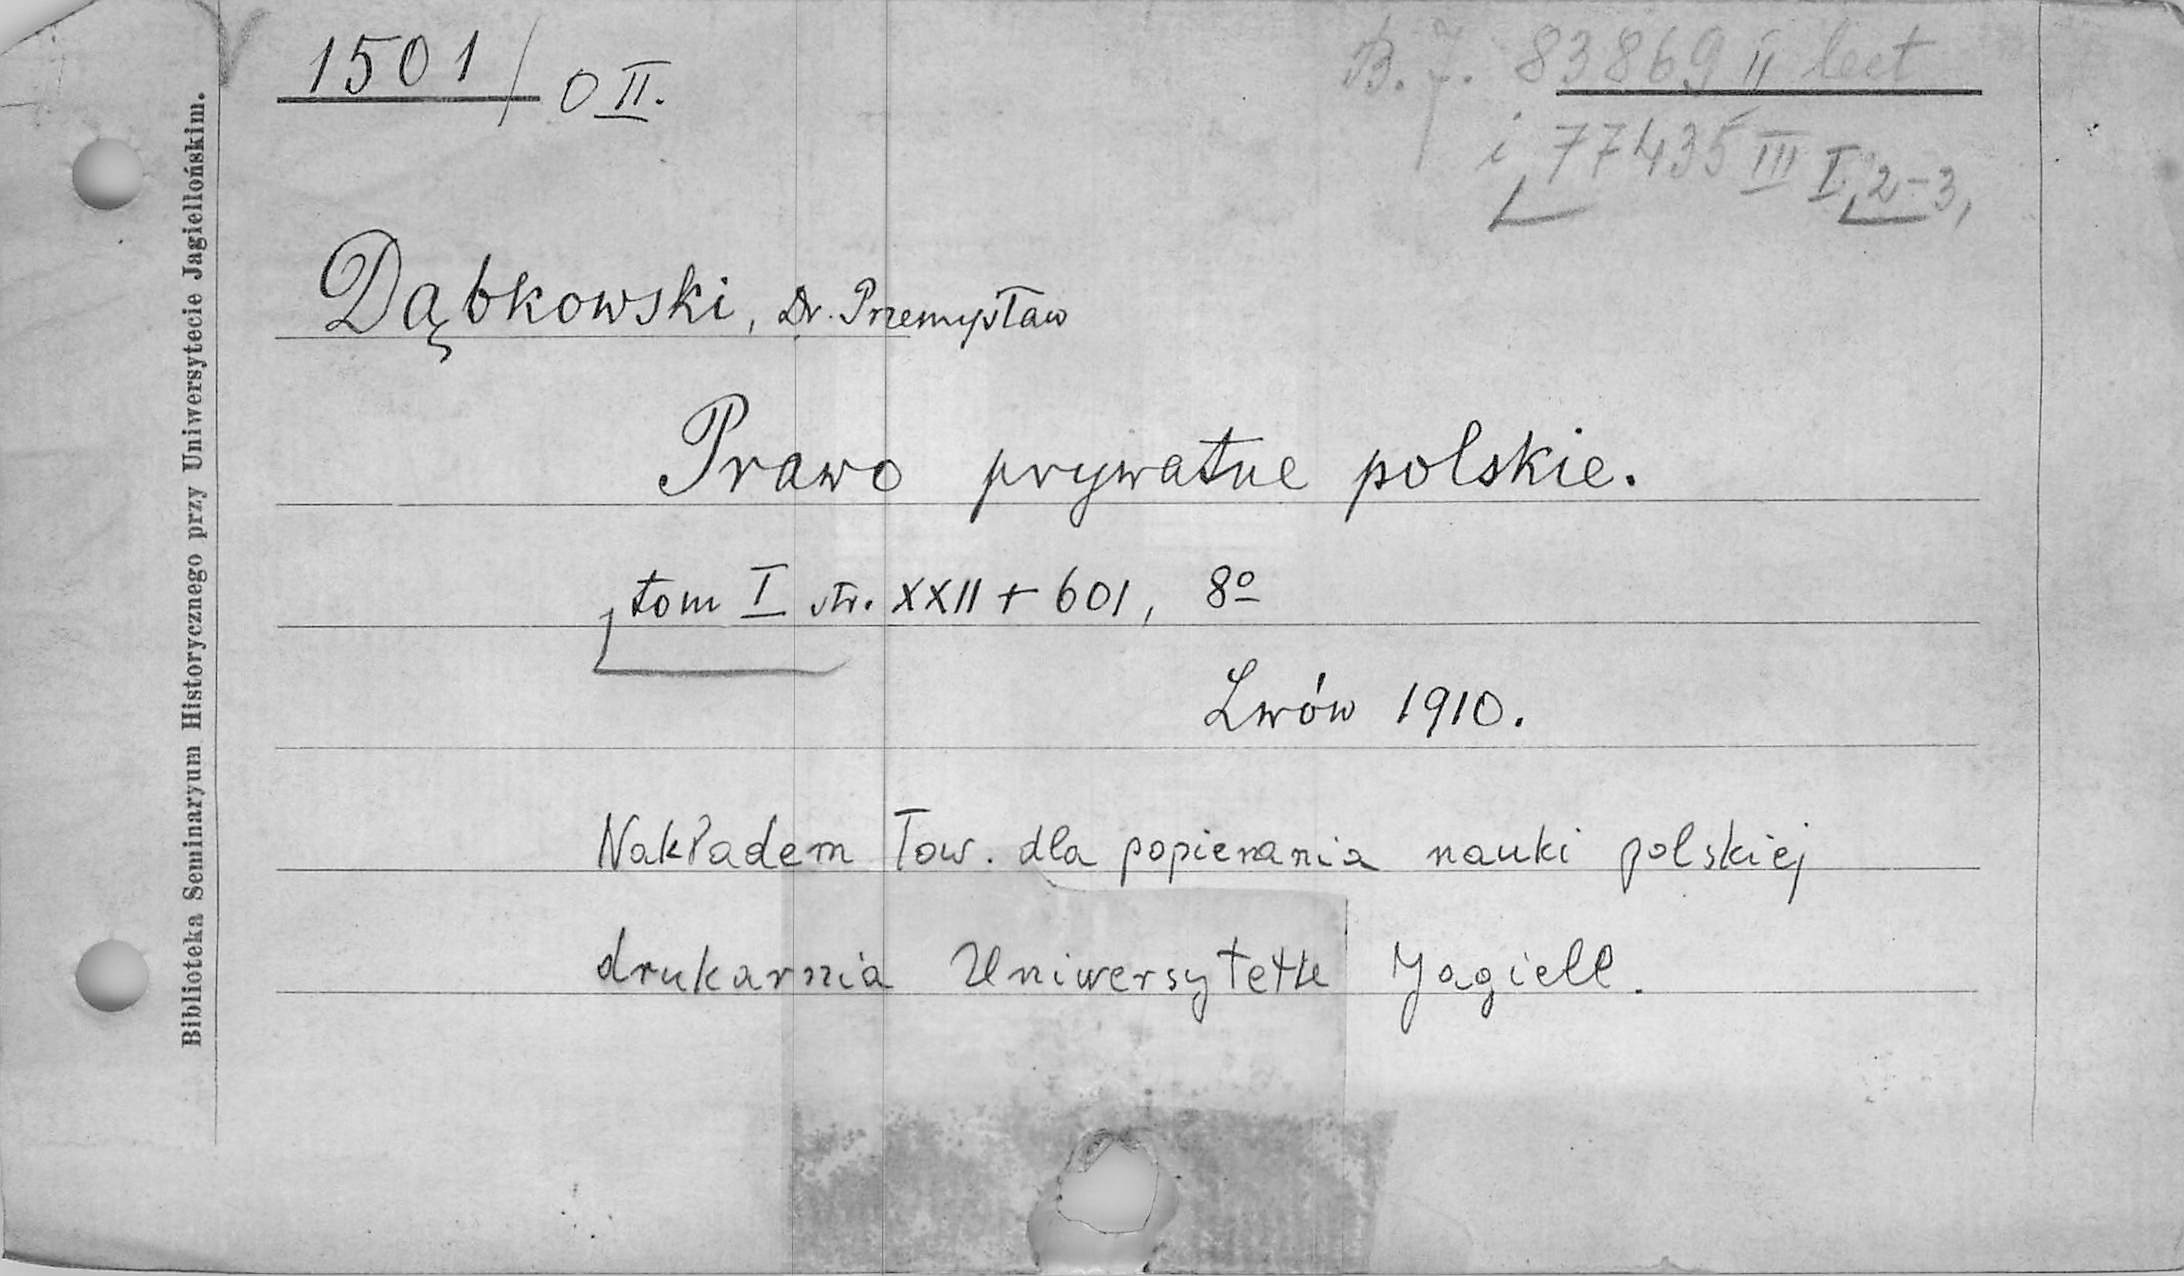 1501/OII.
B. J. 83869 II lect
i 77435 III I, 2-3,
Dąbkowski, Dr. Przemysław
Prawo prywatne polskie.
tom I str. XXII + 601, 8º
Lwów 1910.
Nakładem Tow. dla popierania nauki polskiej
drukarnia Uniwersytetu Jagiell.
Biblioteka Seminaryum Historycznego przy Uniwersytecie Jagiellońskim.